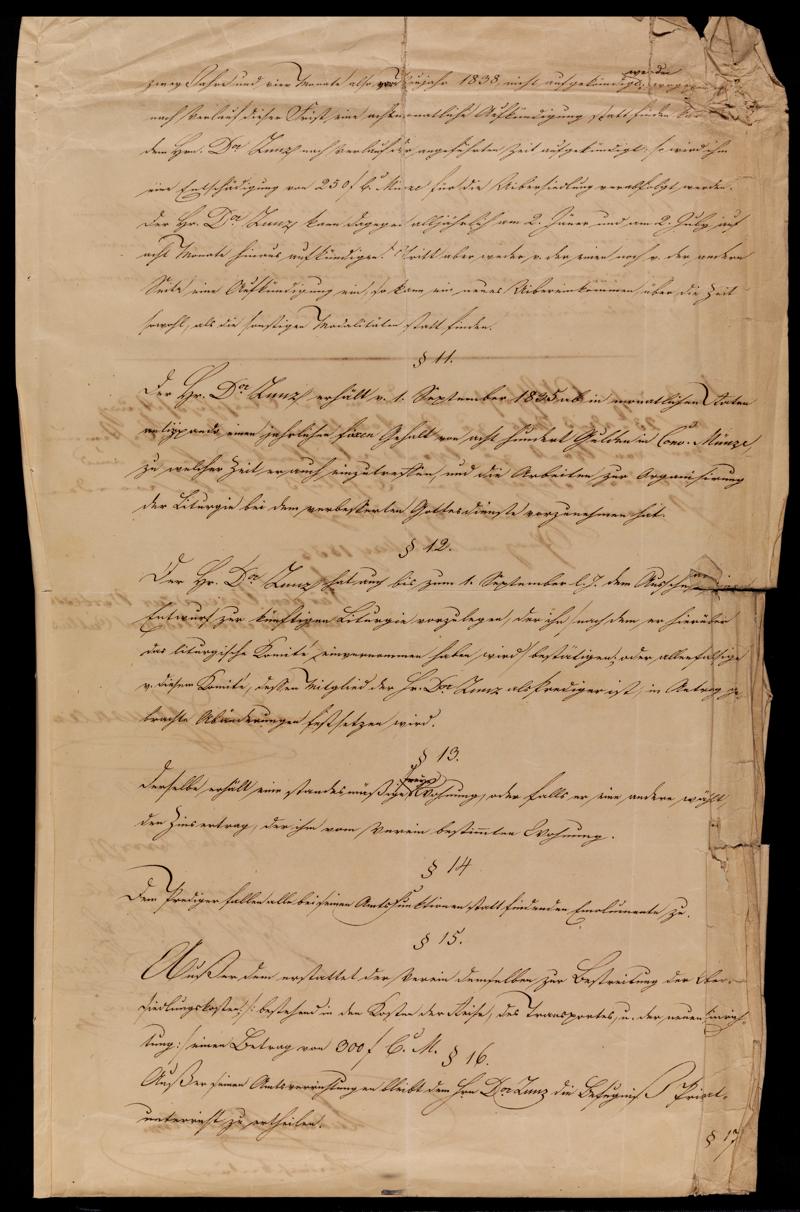 zwey Jahre und vier Monate also vor Neujahr 1838, nicht aufgekündigt werden
nach Verlauf dieser Frist, eine achtmonatliche Aufkündigung statt finden
dem Hrn. Dor Zunz nach Verlauf der angeführten Zeit aufgekündigt, so wird ihm
eine Entschädigung von 250 f C. Münze für die Übersiedlung verabfolgt werden.
Der Hr. Dor Zunz kann dagegen alljährlich am 2. Jäner und am 2. July auf
acht Monate hinaus aufkündigen. Tritt aber weder v. der einen noch v. der andern
Seite eine Aufkündigung ein, so kann ein neues Übereinkommen über die Zeit
sowohl, als die sonstigen Modalitäten statt finden.
§ 11.
Der Hr. Dor Zunz erhält v. 1. September 1835 ab in monatlichen Raten
antizipando einen jährlichen fixen Gehalt von acht hundert Gulden in Conv. Münze,
zu welcher Zeit er auch einzutreffen, und die Arbeiten zur Organisirung
der Liturgie bei dem verbesserten Gottesdienste vorzunehmen hat.
§ 12.
Der Hr. Dor Zunz hat auch bis zum 1. September l. J. dem Ausschusse einen
Entwurf zur künftigen Liturgie vorzulegen, der ihn, nach dem er hierüber
das liturgische Komité einvernommen haben wird, bestätigen, oder allenfallsige
v. diesem Komité, dessen Mitglied der Hr. Dor Zunz als Prediger ist, in Antrag ge-
brachte Abänderungen festsetzen wird.
§ 13.
Derselbe erhält eine standesmäßige freye Wohnung, oder falls er eine andere wählt,
den Zinsertrag, der ihm vom Verein bestimmten Wohnung.
§ 14
Dem Prediger fallen alle bei seinen Amtsfunktionen statt findenden Emolumente zu.
§ 15.
Außer dem erstattet der Verein demselben zur Bestreitung der Über-
siedlungskosten /: bestehend in den Kosten der Reise, des Transportes, u. der neuen Einrich-
tung :/ einen Betrag von 300 f C. M.
§ 16.
Außer seinen Amtsverrichtungen bleibt dem Hrn Dor Zunz die Befugniß Privat-
unterricht zu ertheilen.
§ 17